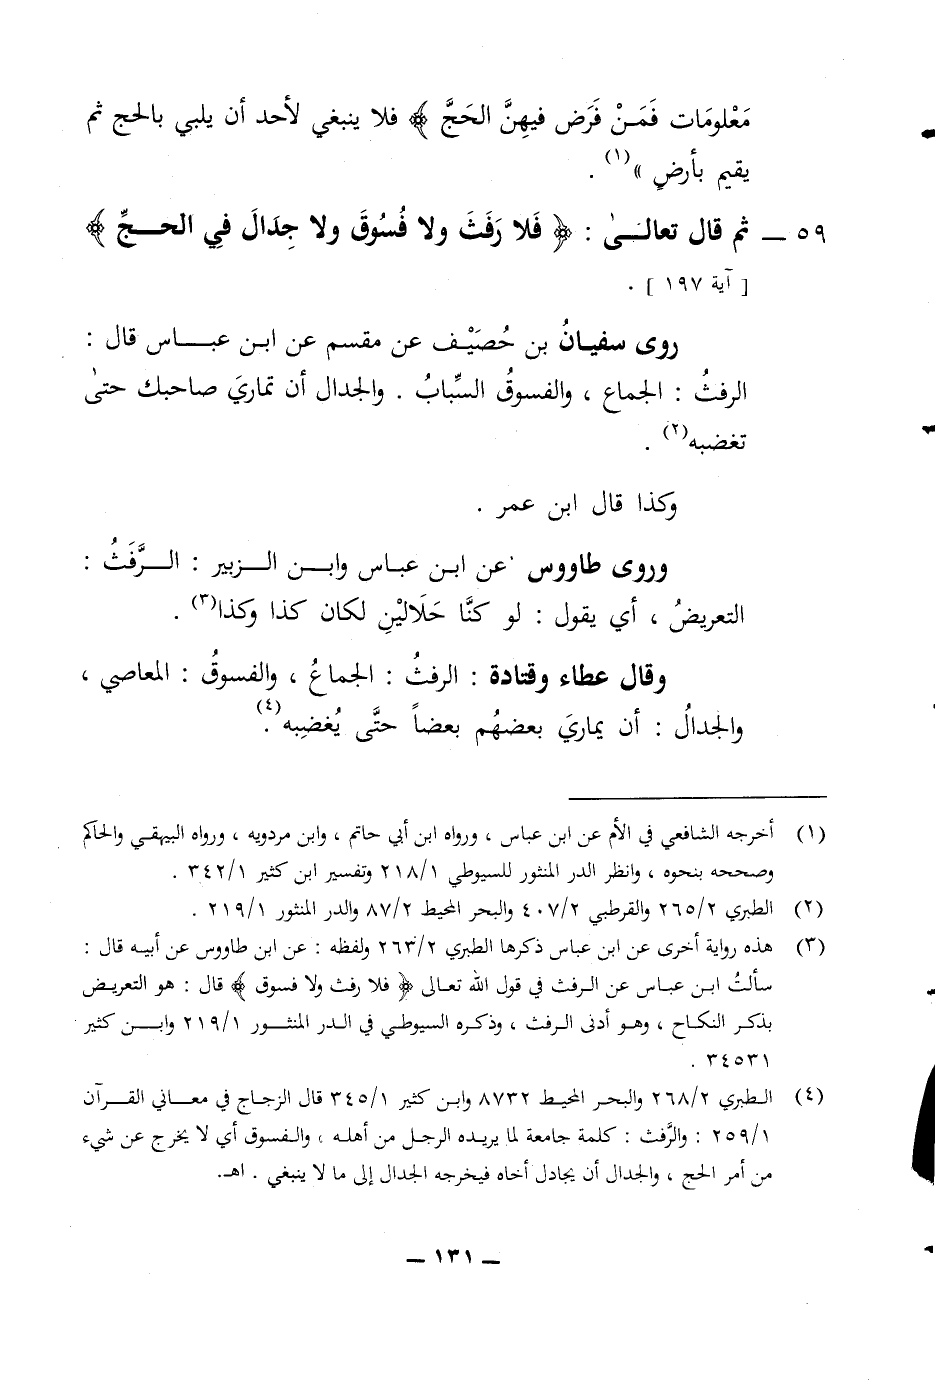 مَعْلومَات فَمَنْ فَرَض فيهِنَّ الحَجَّ ﴾ فلا ينبغي لأحد أن يلبي بالحج ثم
يقيم بأرضٍ »(١) .
٥٩ ــ ثم قال تعالـىٰ : ﴿ فَلا رَفَثَ ولا فُسُوقَ ولا جِدَالَ فِي الحـجِّ ﴾
[ آية ١٩٧ ] .
روى سفيـانُ بن خُصَيْـف عن مقسم عن ابـن عبـاس قال :
الرفثُ : الجماع ، والفسوقُ السِّبابُ . والجدال أن تماريَ صاحبك حتىٰ
تغضبه(٢) .
وكذا قال ابن عمر .
وروى طاووس عن ابـن عبـاس وابـن الـزبير : الـرَّفَثُ :
التعريضُ ، أي يقول : لو كنَّا حَلَالَيْنِ لكان كذا وكذا(٣) .
وقال عطاء وقتادة : الرفثُ : الجماعُ ، والفسوقُ : المعاصي ،
والجدالُ : أن يماريَ بعضهُم بعضاً حتَّى يُغضِبه(٤).
(١) أخرجه الشافعي في الأم عن ابن عباس ، ورواه ابن أبي حاتم ، وابن مردويه ، ورواه البيهقـي والحاكم
وصححه بنحوه ، وانظر الدر المنثور للسيوطي ٢١٨/١ وتفسير ابن كثير ٣٤٢/١ .
(٢) الطبري ٢٦٥/٢ والقرطبي ٤٠٧/٢ والبحر المحيط ٨٧/٢ والدر المنثور ٢١٩/١ .
(٣) هذه رواية أخرى عن ابن عباس ذكرها الطبري ٢٦٣/٢ ولفظه : عن ابن طاووس عن أبيـه قال :
سألتُ ابـن عبـاس عن الـرفث في قول الله تعـالى ﴿ فلا رفث ولا فسوق ﴾ قال : هو التعريـض
بذكر النكـاح ، وهـو أدنى الـرفث ، وذكـره السيوطـي في الـدر المنثـور ٢١٩/١ وابـن كثير
٣٤٥٣١ .
(٤) الـطبري ٢٦٨/٢ والبحـر المحيـط ٨٧٣٢ وابـن كثير ٣٤٥/١ قال الزجـاج في معـاني القـرآن
٢٥٩/١ : والرَّفث : كلمة جامعة لما يريـده الرجل من أهلـه ، والـفسوق أي لا يخرج عن شيء
من أمر الحج ، والجدال أن يجادل أخاه فيخرجه الجدال إلى ما لا ينبغي . اهـ.
ــ ١٣١ ــ